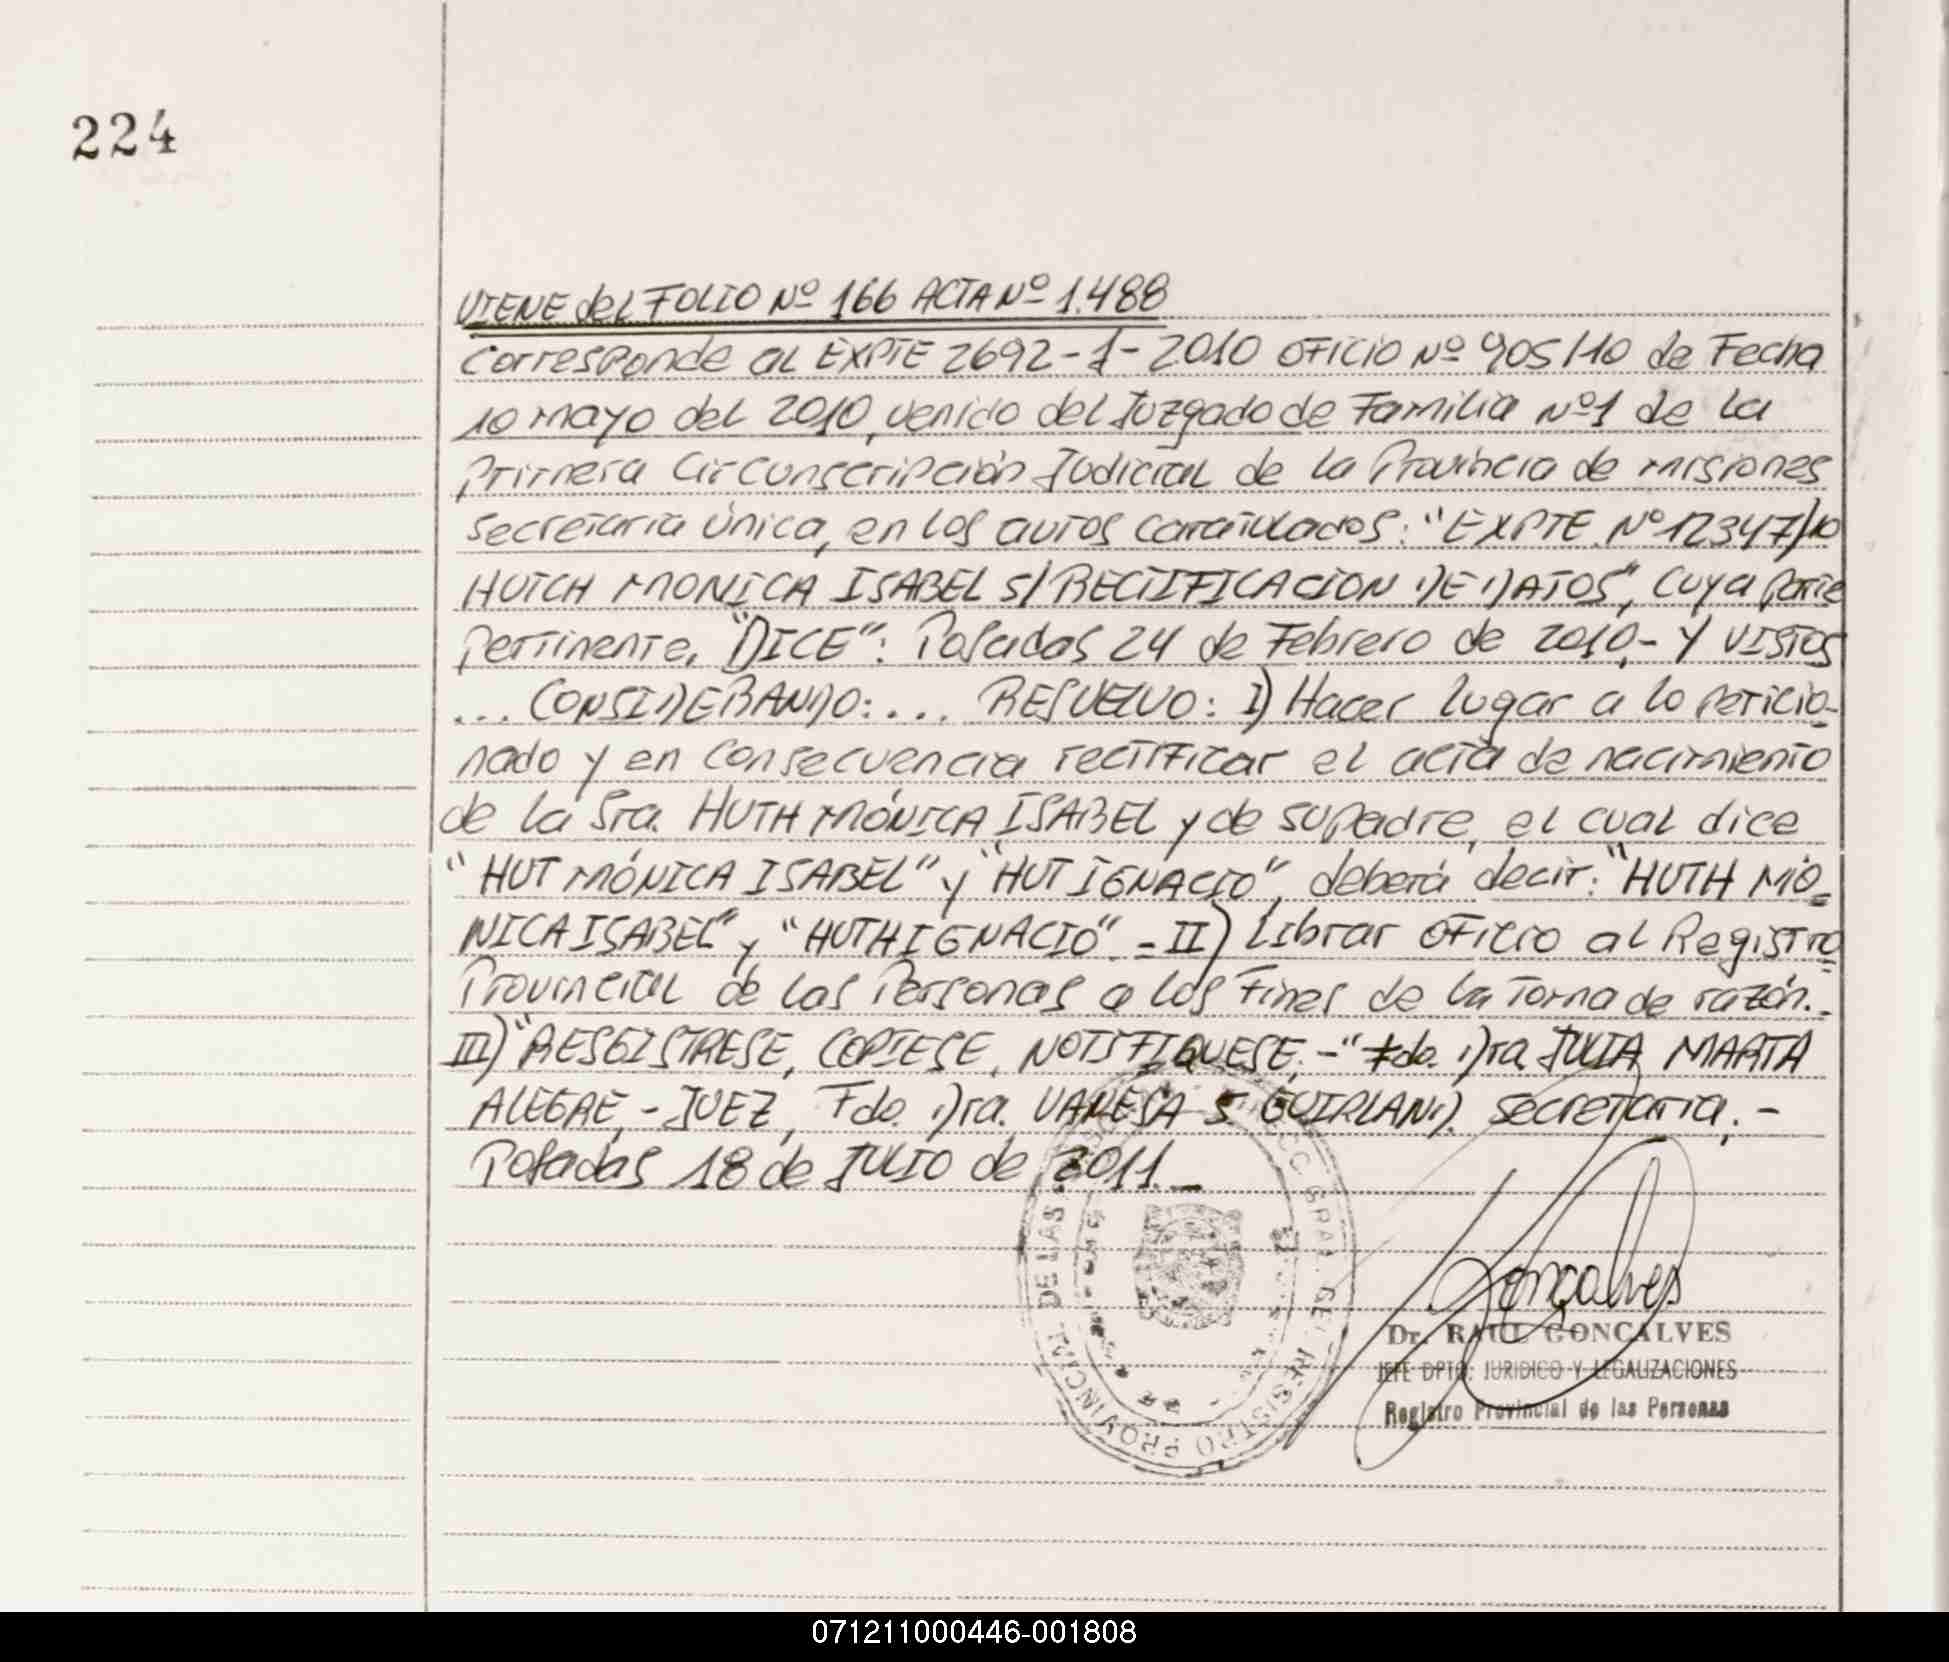 224
VIENE del FOLIO Nº 166 ACTA Nº 1.488
Corresponde al EXPTE 2692-1-2010 OFICIO Nº 905/10 de Fecha
10 mayo del 2010, venido del Juzgado de Familia Nº1 de la
Primera Circunscripción Judicial de la Provincia de misiones
secretaria única, en los autos caratulados: "EXPTE. Nº 12347/10
HUTCH MONICA ISABEL S/ RECTIFICACION DE DATOS", cuya parte
pertinente, "DICE": Posadas 24 de Febrero de 2010.- Y VISTOS
... CONSIDERANDO: ... RESUELVO: I) Hacer lugar a lo peticio-
nado y en consecuencia rectificar el acta de nacimiento
de la Sra. HUTH MÓNICA ISABEL y de su padre, el cual dice
"HUT MÓNICA ISABEL" y "HUT IGNACIO", deberá decir: "HUTH MÓ-
NICA ISABEL" y "HUTH IGNACIO". - II) Librar oficio al Registro
Provincial de las Personas a los Fines de la Toma de razón.-
III) "RESGISTRESE, COPIESE, NOTIFIQUESE.-" Fdo. Dra JULIA MARTA
ALEGRE, - JUEZ, Fdo. Dra. VANESA S. GUIRLAND. secretaria. -
Posadas 18 de JULIO de 2011. -
REGISTRO PROVINCIAL DE LAS
Goncalves
Dr. RAUL GONCALVES
JEFE DPTO: JURIDICO Y LEGALIZACIONES
Registro Provincial de las Personas
071211000446-001808